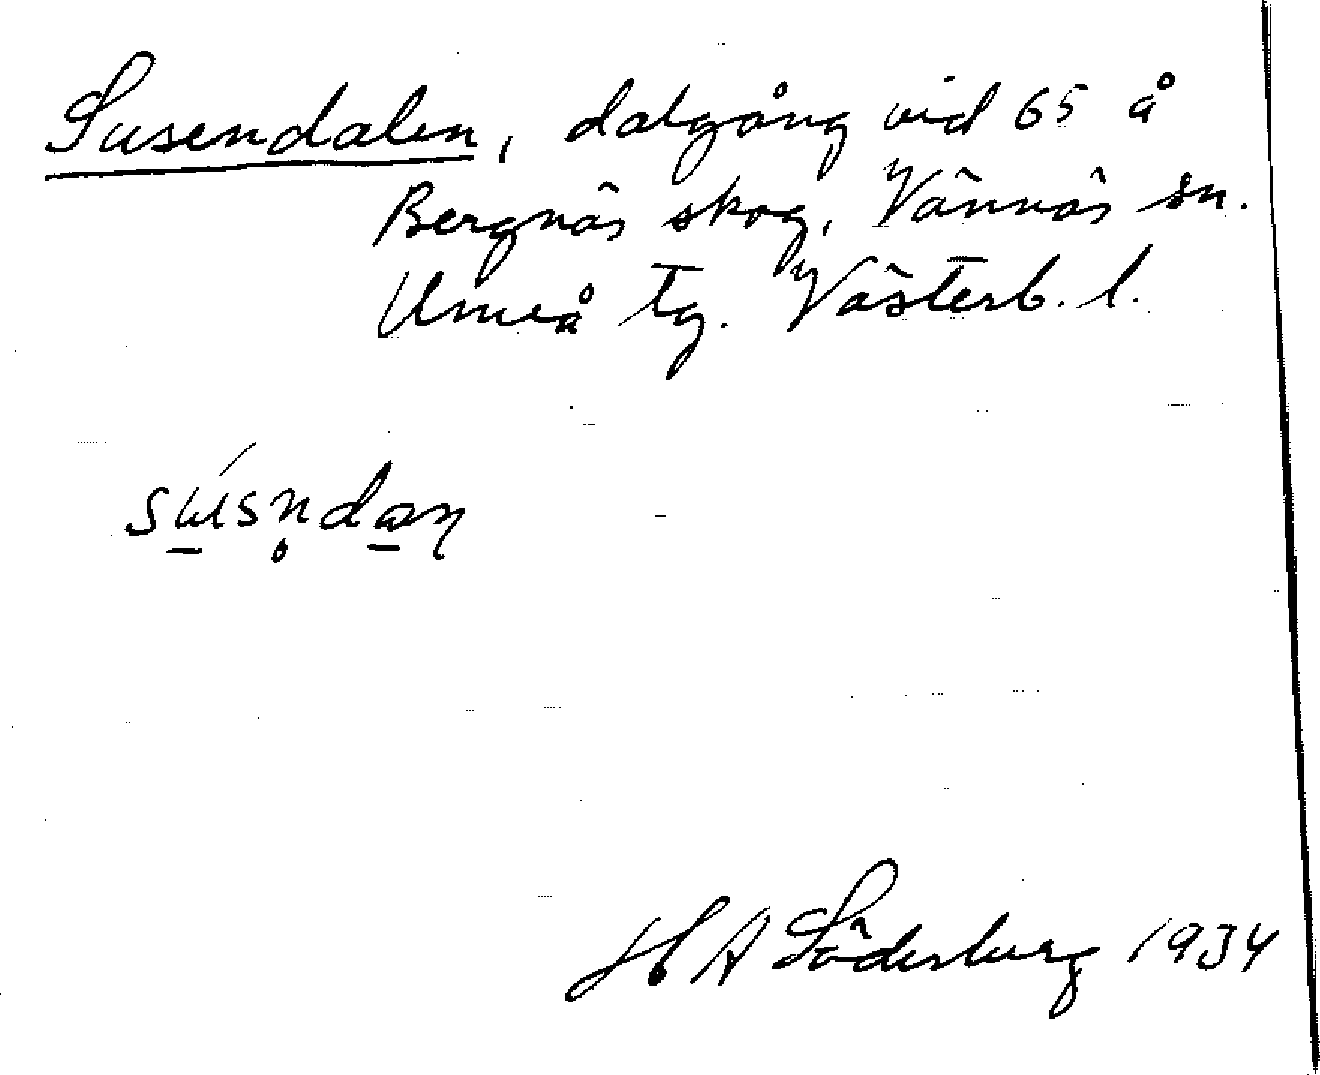 Susendalen, dalgång vid 65 å
Bergnäs skog, Vännäs sn.
Umeå tg. Västerb. l.
su̲sn̥da̲n
H A Söderberg 1934